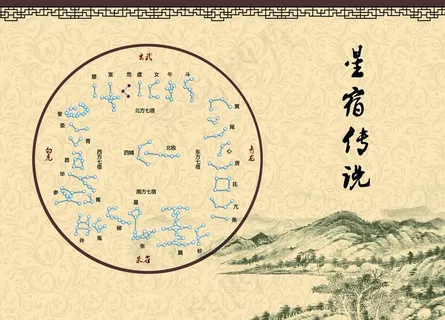 玄武
壁 室 危 虚 女 牛 斗
北方七宿
奎
娄
胃
昴
毕
参
觜
白虎
西方七宿
四辅
北极
东方七宿
青龙
箕
尾
心
房
氐
亢
角
南方七宿
井 鬼 柳 星 张 翼 轸
朱雀
星宿传说